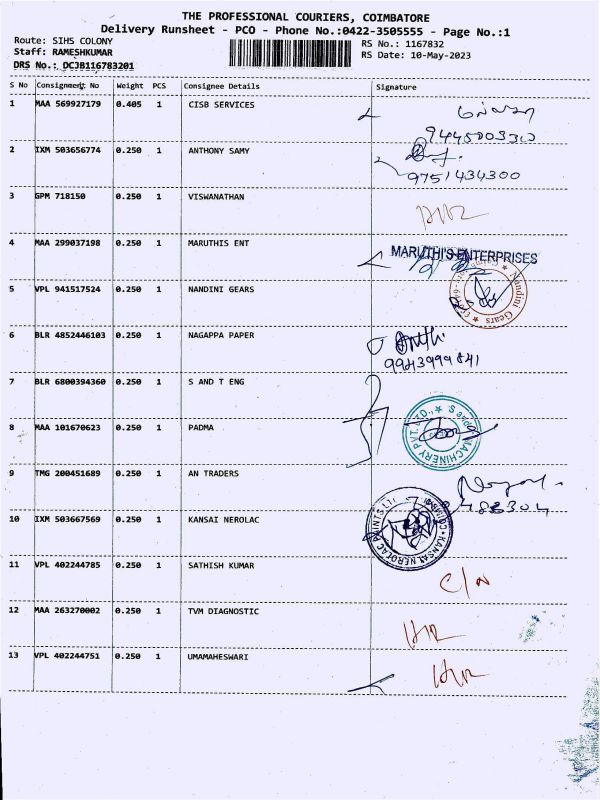 THE PROFESSIONAL COURIERS, COIMBATORE
Delivery Runsheet - PCO - Phone No.:0422-3505555 - Page No.:1
Route: SIHS COLONY
RS No.: 1167832
Staff: RAMESHKUMAR
RS Date: 10-May-2023
DRS No.: DCJB116783201
S No Consignment No Weight PCS Consignee Details Signature
1 MAA 569927179 0.405 1 CISB SERVICES
2 IXM 503656774 0.250 1 ANTHONY SAMY
9751434300
3 GPM 718150 0.250 1 VISWANATHAN
4 MAA 299037198 0.250 1 MARUTHIS ENT
MARUTHI'S ENTERPRISES
5 VPL 941517524 0.250 1 NANDINI GEARS
Nandini Gears
6 BLR 4852446103 0.250 1 NAGAPPA PAPER
9943999841
7 BLR 6800394360 0.250 1 S AND T ENG
8 MAA 101670623 0.250 1 PADMA
MACHINERY PVT. LTD.,
9 TMG 200451689 0.250 1 AN TRADERS
10 IXM 503667569 0.250 1 KANSAI NEROLAC
KANSAI NEROLAC PAINTS LTD
11 VPL 402244785 0.250 1 SATHISH KUMAR
12 MAA 263270002 0.250 1 TVM DIAGNOSTIC
13 VPL 402244751 0.250 1 UMAMAHESWARI